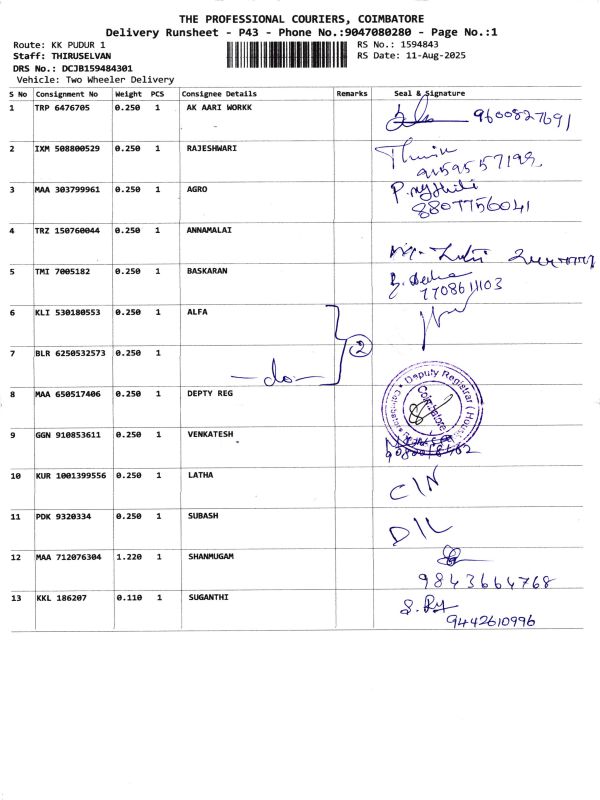 THE PROFESSIONAL COURIERS, COIMBATORE
Delivery Runsheet - P43 - Phone No.:9047080280 - Page No.:1
Route: KK PUDUR 1
RS No.: 1594843
Staff: THIRUSELVAN
RS Date: 11-Aug-2025
DRS No.: DCJB159484301
Vehicle: Two Wheeler Delivery
S No Consignment No Weight PCS Consignee Details Remarks Seal & Signature
1 TRP 6476705 0.250 1 AK AARI WORKK 9600827691
2 IXM 508800529 0.250 1 RAJESHWARI
9159557199
3 MAA 303799961 0.250 1 AGRO P. Mythili
8807756041
4 TRZ 150760044 0.250 1 ANNAMALAI
5 TMI 7005182 0.250 1 BASKARAN
7708611103
6 KLI 530180553 0.250 1 ALFA
7 BLR 6250532573 0.250 1 2
-do-
8 MAA 650517406 0.250 1 DEPTY REG Deputy Registrar (Housing) Coimbatore
9 GGN 910853611 0.250 1 VENKATESH
10 KUR 1001399556 0.250 1 LATHA C/N
11 PDK 9320334 0.250 1 SUBASH D/L
12 MAA 712076304 1.220 1 SHANMUGAM
9843664768
13 KKL 186207 0.110 1 SUGANTHI
9442610996